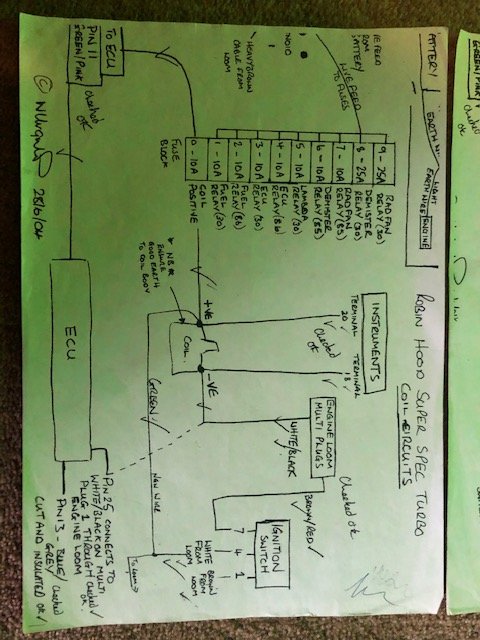 ROBIN HOOD SUPER SPEC TURBO
COIL CIRCUITS
BATTERY
EARTH
EARTH WIRE/ENGINE
LIVE FEED
TO FUSES
HEAVY BROWN
CABLE FROM
LOOM
9 - 25A RAD FAN
RELAY (30)
8 - 25A DEMISTER
RELAY (30)
7 - 10A RAD FAN
RELAY (85)
6 - 10A DEMISTER
RELAY (85)
5 - 10A LAMBDA
RELAY (30)
4 - 10A ECU
RELAY (86)
3 - 10A ECU
RELAY (30)
2 - 10A FUEL
RELAY (86)
1 - 10A FUEL
RELAY (30)
0 - 10A COIL
POSITIVE
FUSE
BLOCK
INSTRUMENTS
TERMINAL
20
TERMINAL
18
Checked
OK
+VE
COIL
-VE
* NB *
ENSURE
GOOD EARTH
TO COIL BODY
ENGINE LOOM
MULTI PLUGS
WHITE/BLACK
Checked OK
BROWN/RED
IGNITION
SWITCH
7 4 1
WHITE
FROM
LOOM
BROWN
FROM
LOOM
NEW WIRE
TO ECU
PIN 11
GREEN/PINK
Checked
OK
ECU
PIN 25 CONNECTS TO
WHITE/BLACK ON MULTI
PLUG 1 THROUGH
ENGINE LOOM
Checked
OK
PIN 13 - BLUE/
GREY
Checked
CUT AND INSULATED OK
28/6/04
GREEN/PINK
Checked
OK